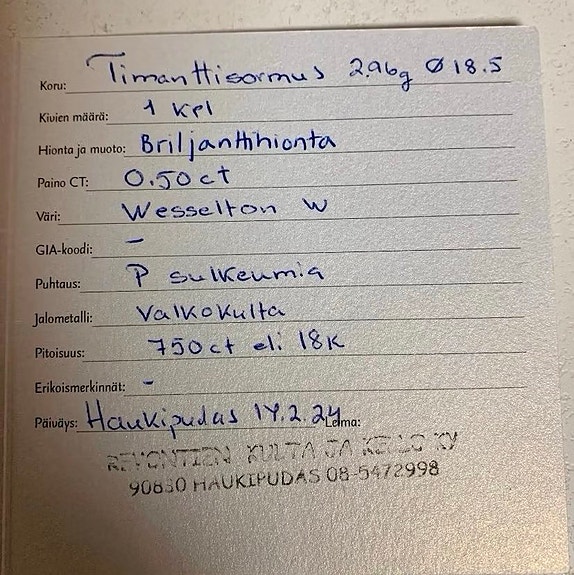 Koru: Timanttisormus 2.96g Ø 18.5
Kivien määrä: 1 kpl
Hionta ja muoto: Briljanttihionta
Paino CT: 0.50 ct
Väri: Wesselton W
GIA-koodi: –
Puhtaus: P sulkeumia
Jalometalli: Valkokulta
Pitoisuus: 750 ct eli 18K
Erikoismerkinnät: –
Päiväys: Haukipudas 14.2.24 Leima:
REVONTIEN KULTA JA KELLO KY
90830 HAUKIPUDAS 08-5472998